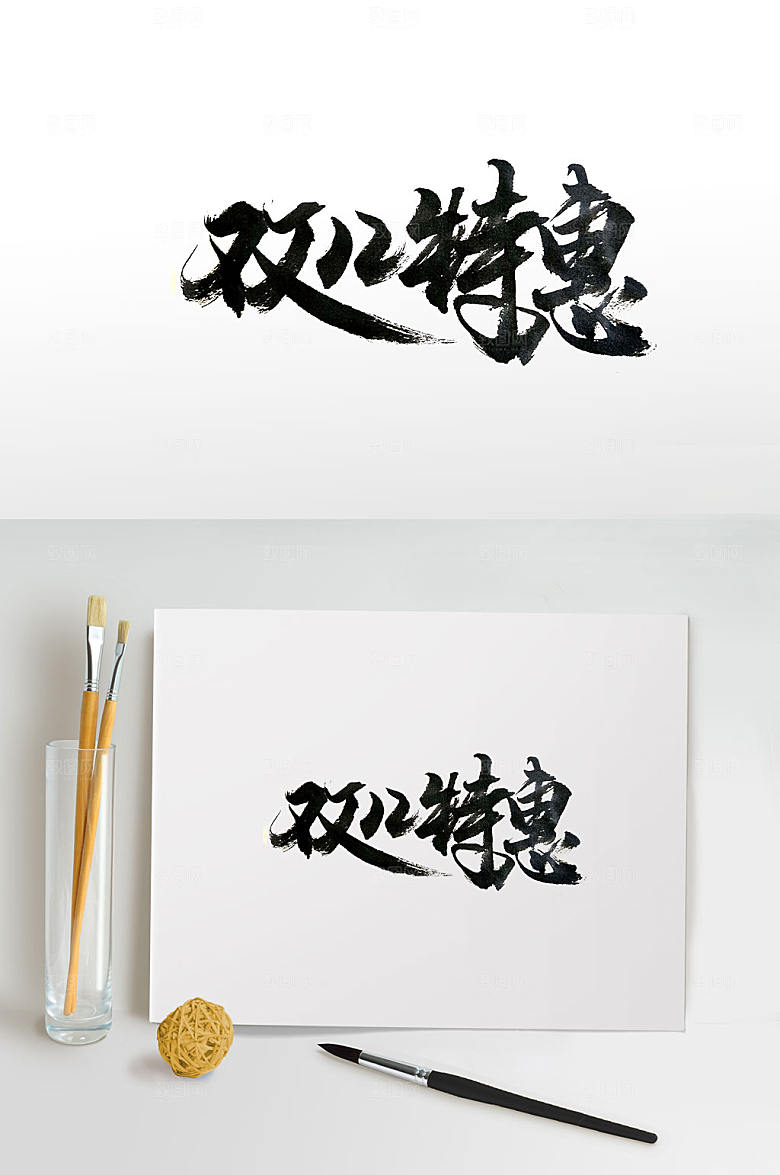 双12特惠
双12特惠